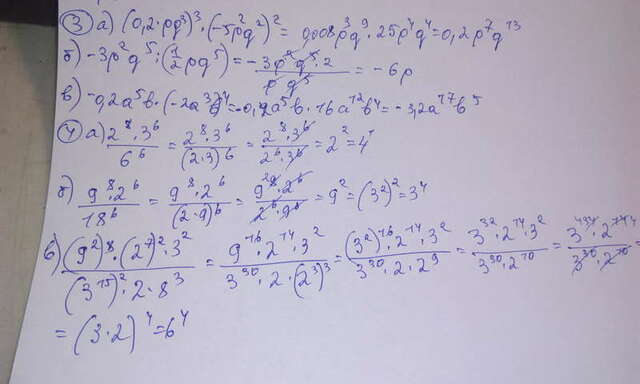 ③ а) (0,2·pq³)³·(-5p²q²)²= 0,008p³q⁹·25p⁴q⁴=0,2p⁷q¹³
б) -3p²q⁵:(1/2 pq⁵) = -3p²q⁵·2/pq⁵ = -6p
в) -0,2a⁵b·(-2a³b)⁴=-0,2a⁵b·16a¹²b⁴=-3,2a¹⁷b⁵
④ а) 2⁸·3⁶/6⁶ = 2⁸·3⁶/(2·3)⁶ = 2⁸·3⁶/2⁶·3⁶ = 2² = 4
б) 9⁸·2⁶/18⁶ = 9⁸·2⁶/(2·9)⁶ = 9⁸·2⁶/2⁶·9⁶ = 9² = (3²)² = 3⁴
в) (9²)⁸·(2⁷)²·3²/(3¹⁵)²·2·8³ = 9¹⁶·2¹⁴·3²/3³⁰·2·(2³)³ = (3²)¹⁶·2¹⁴·3²/3³⁰·2·2⁹ = 3³²·2¹⁴·3²/3³⁰·2¹⁰ = 3³⁴·2¹⁴/3³⁰·2¹⁰ =
= (3·2)⁴=6⁴